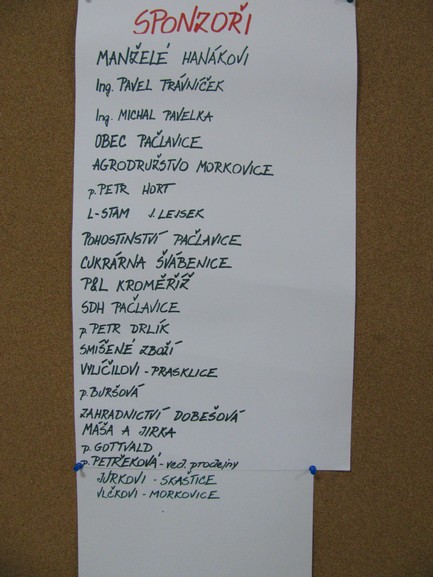 SPONZOŘI
MANŽELÉ HANÁKOVI
Ing. PAVEL TRÁVNÍČEK
Ing. MICHAL PAVELKA
OBEC PAČLAVICE
AGRODRUŽSTVO MORKOVICE
p. PETR HORT
L-STAM J. LEJSEK
POHOSTINSTVÍ PAČLAVICE
CUKRÁRNA ŠVÁBENICE
P&L KROMĚŘÍŽ
SDH PAČLAVICE
p. PETR DRLÍK
SMÍŠENÉ ZBOŽÍ
VYLÍČILOVI - PRASKLICE
p. BURŠOVÁ
ZAHRADNICTVÍ DOBEŠOVÁ
MÁŠA A JIRKA
p. GOTTVALD
p. PETŘEKOVÁ - ved. prodejny
JURKOVI - SKAŠTICE
VLČKOVI - MORKOVICE